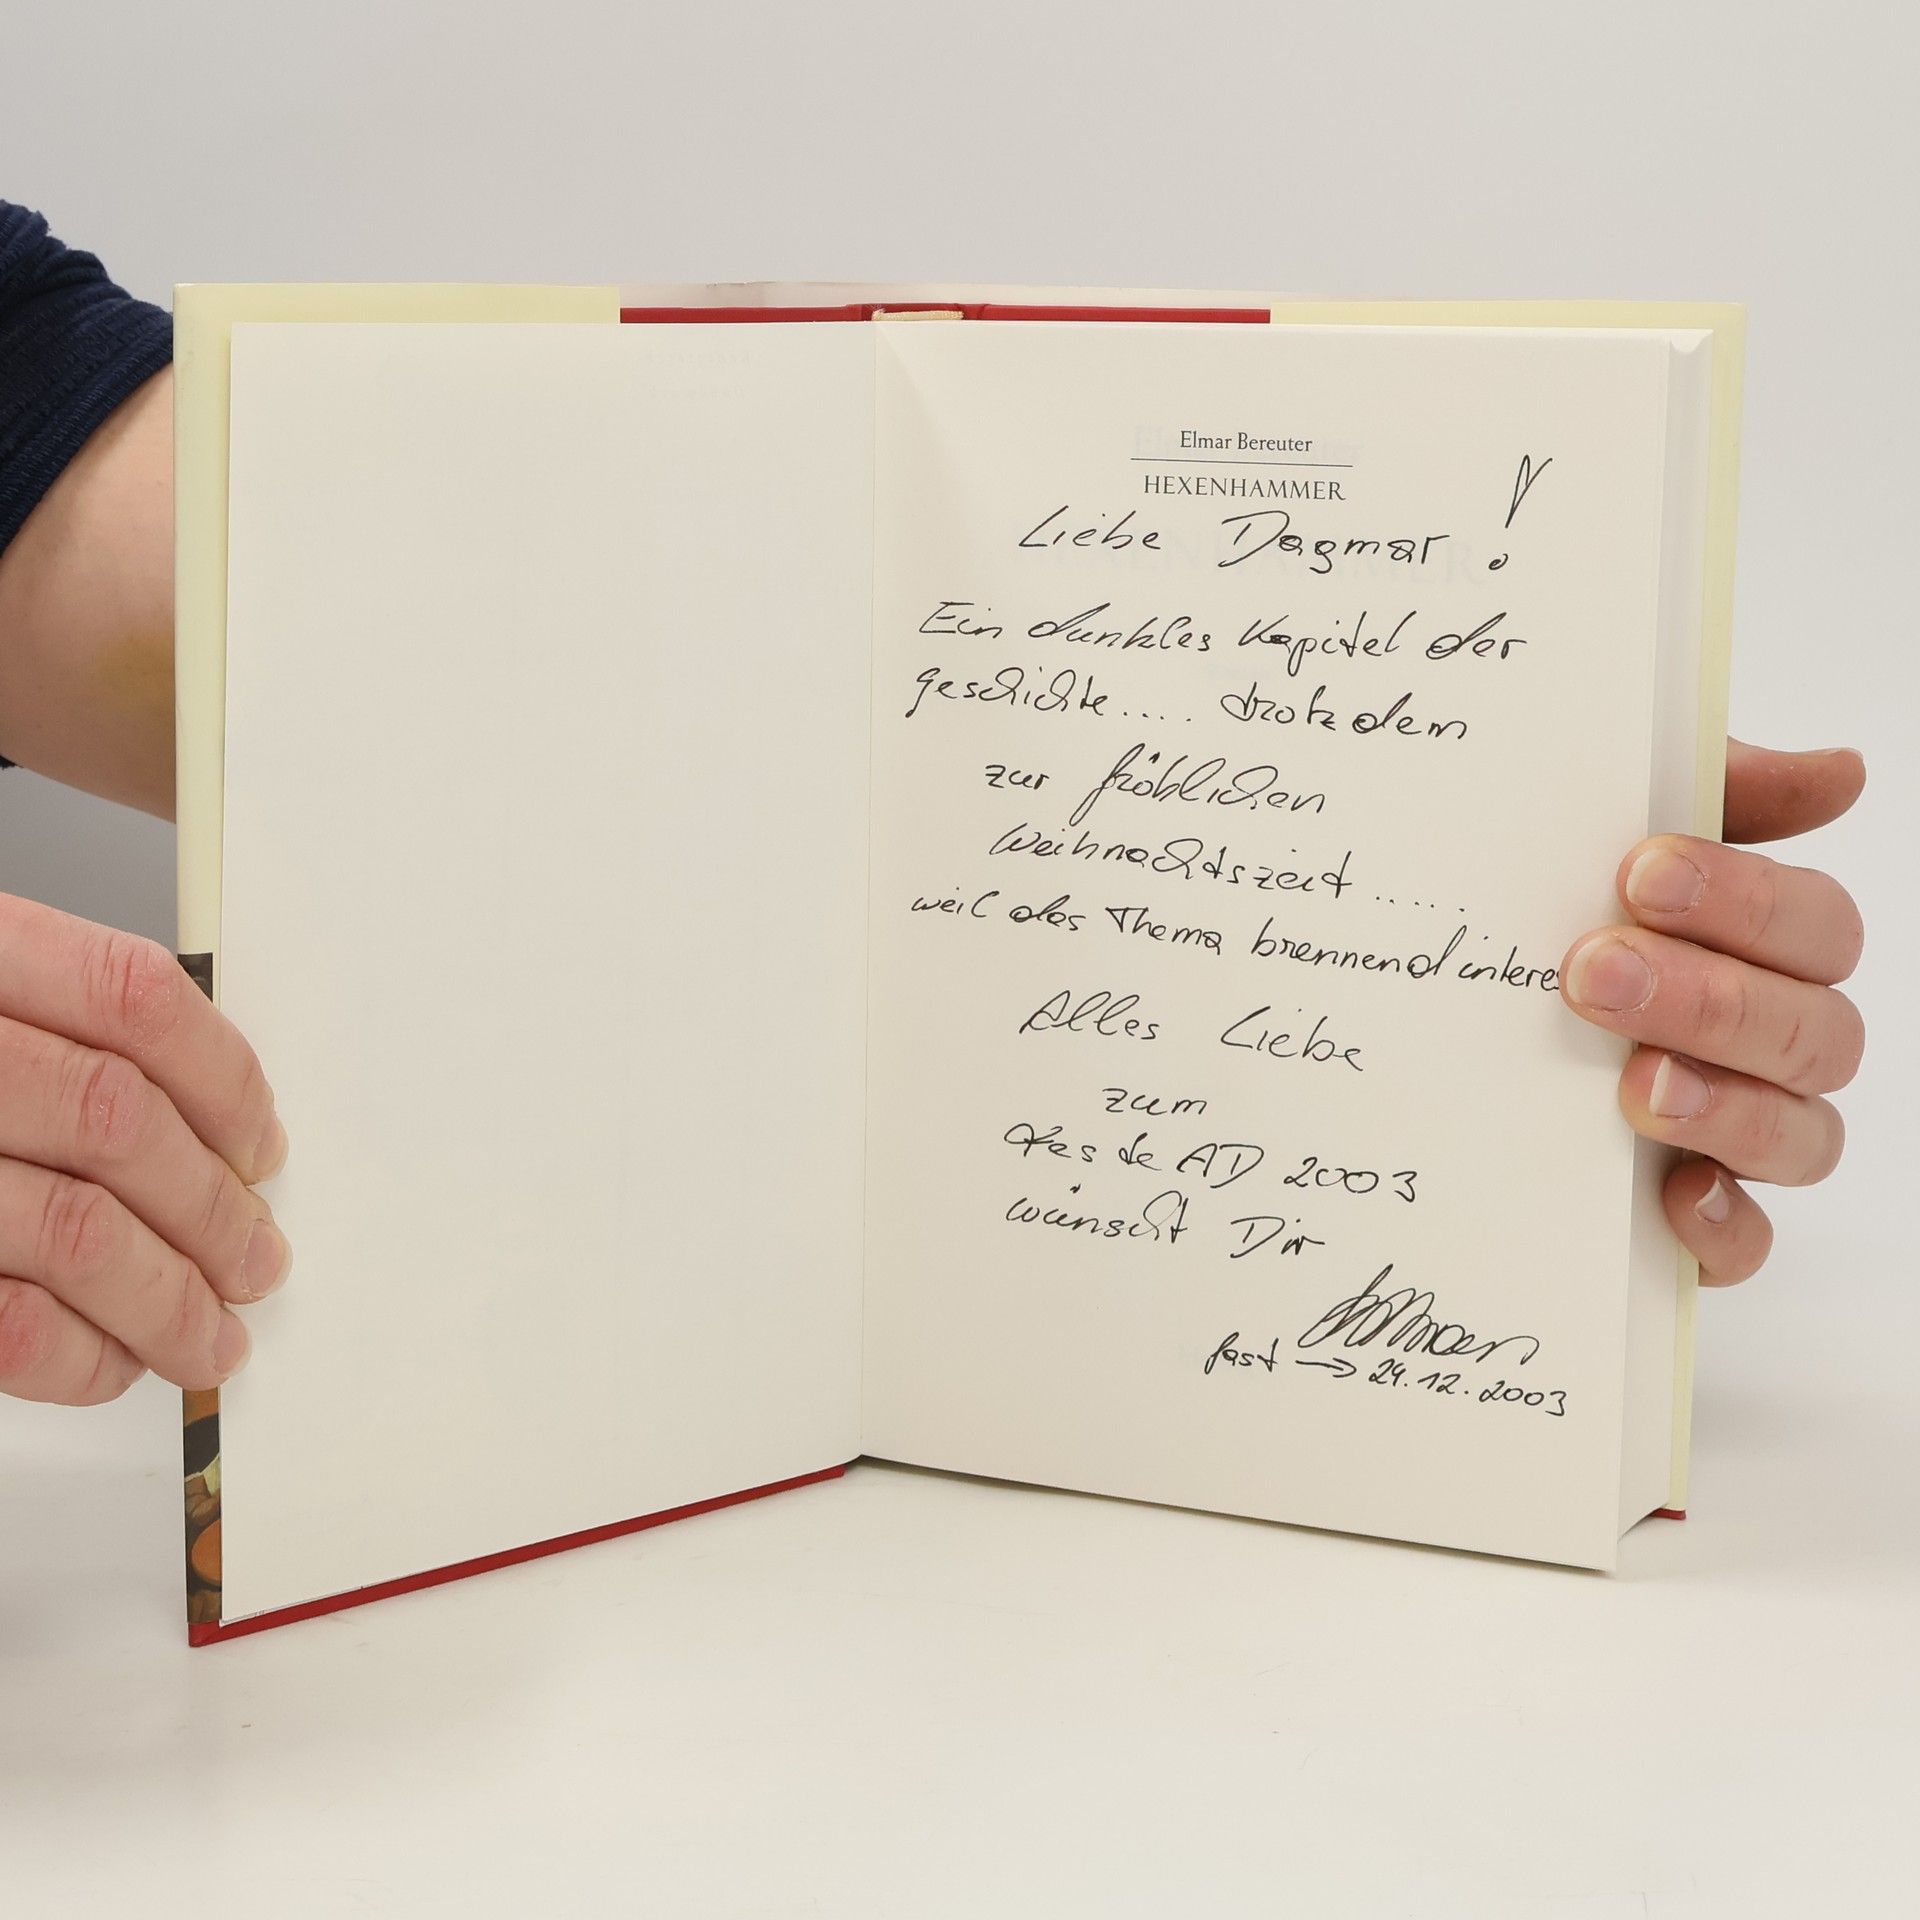 Elmar Bereuter
HEXENHAMMER
Liebe Dagmar!
Ein dunkles Kapitel der
geschichte.... trotzdem
zur fröhlichen
Weihnachtszeit.....
weil das Thema brennend interes
Alles Liebe
zum
Feste AD 2003
wünscht Dir
fast → 24.12.2003